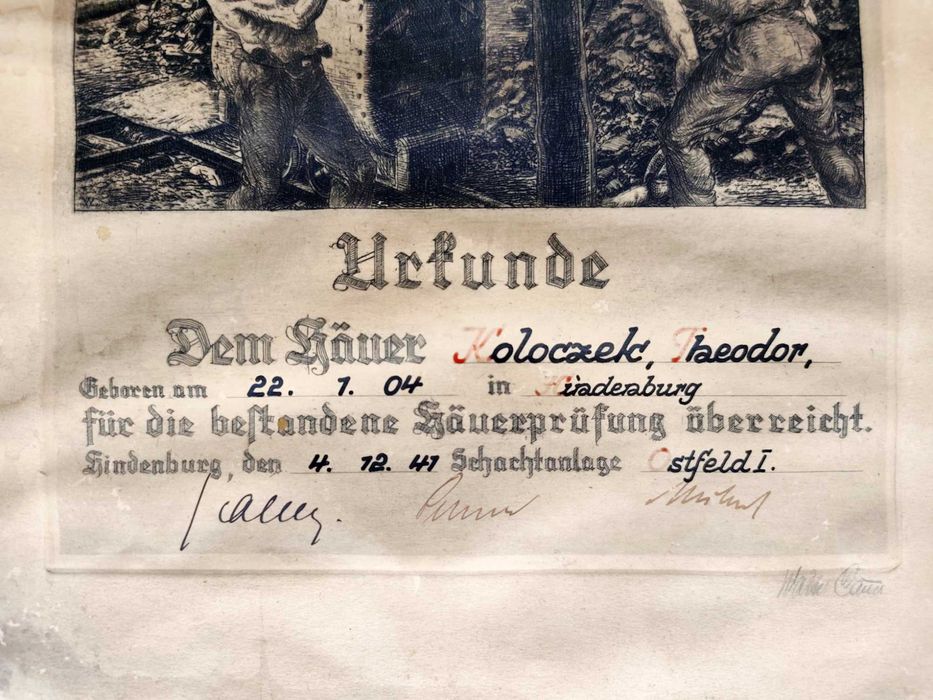 Urkunde
Dem Häuer Koloczek, Theodor,
Geboren am 22. 1. 04 in Hindenburg
für die bestandene Häuerprüfung überreicht.
Hindenburg, den 4. 12. 41 Schachtanlage Ostfeld I.